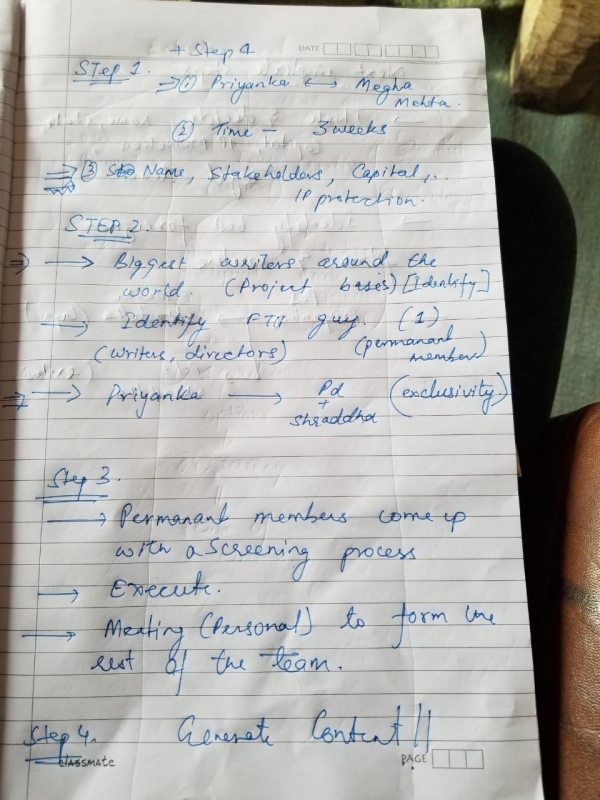 + Step 4
DATE
STep 1.
⇒ ① Priyanka ↔ Megha
Mehta.
② Time – 3 weeks
⇒ ③ Name, Stakeholders, Capital,..
IP protection.
STEP 2.
⇒ → Biggest writers around the
world. (Project bases) [Identify]
→ Identify FTII guy. (1)
(writers, directors) (permanant
member)
⇒ → Priyanka → Pd (exclusivity)
+
Shraddha
Step 3.
→ Permanant members come up
with a Screening process
→ Execute.
→ Meeting (Personal) to form the
rest of the team.
Step 4. Generate Content!!
CLASSMATE
PAGE